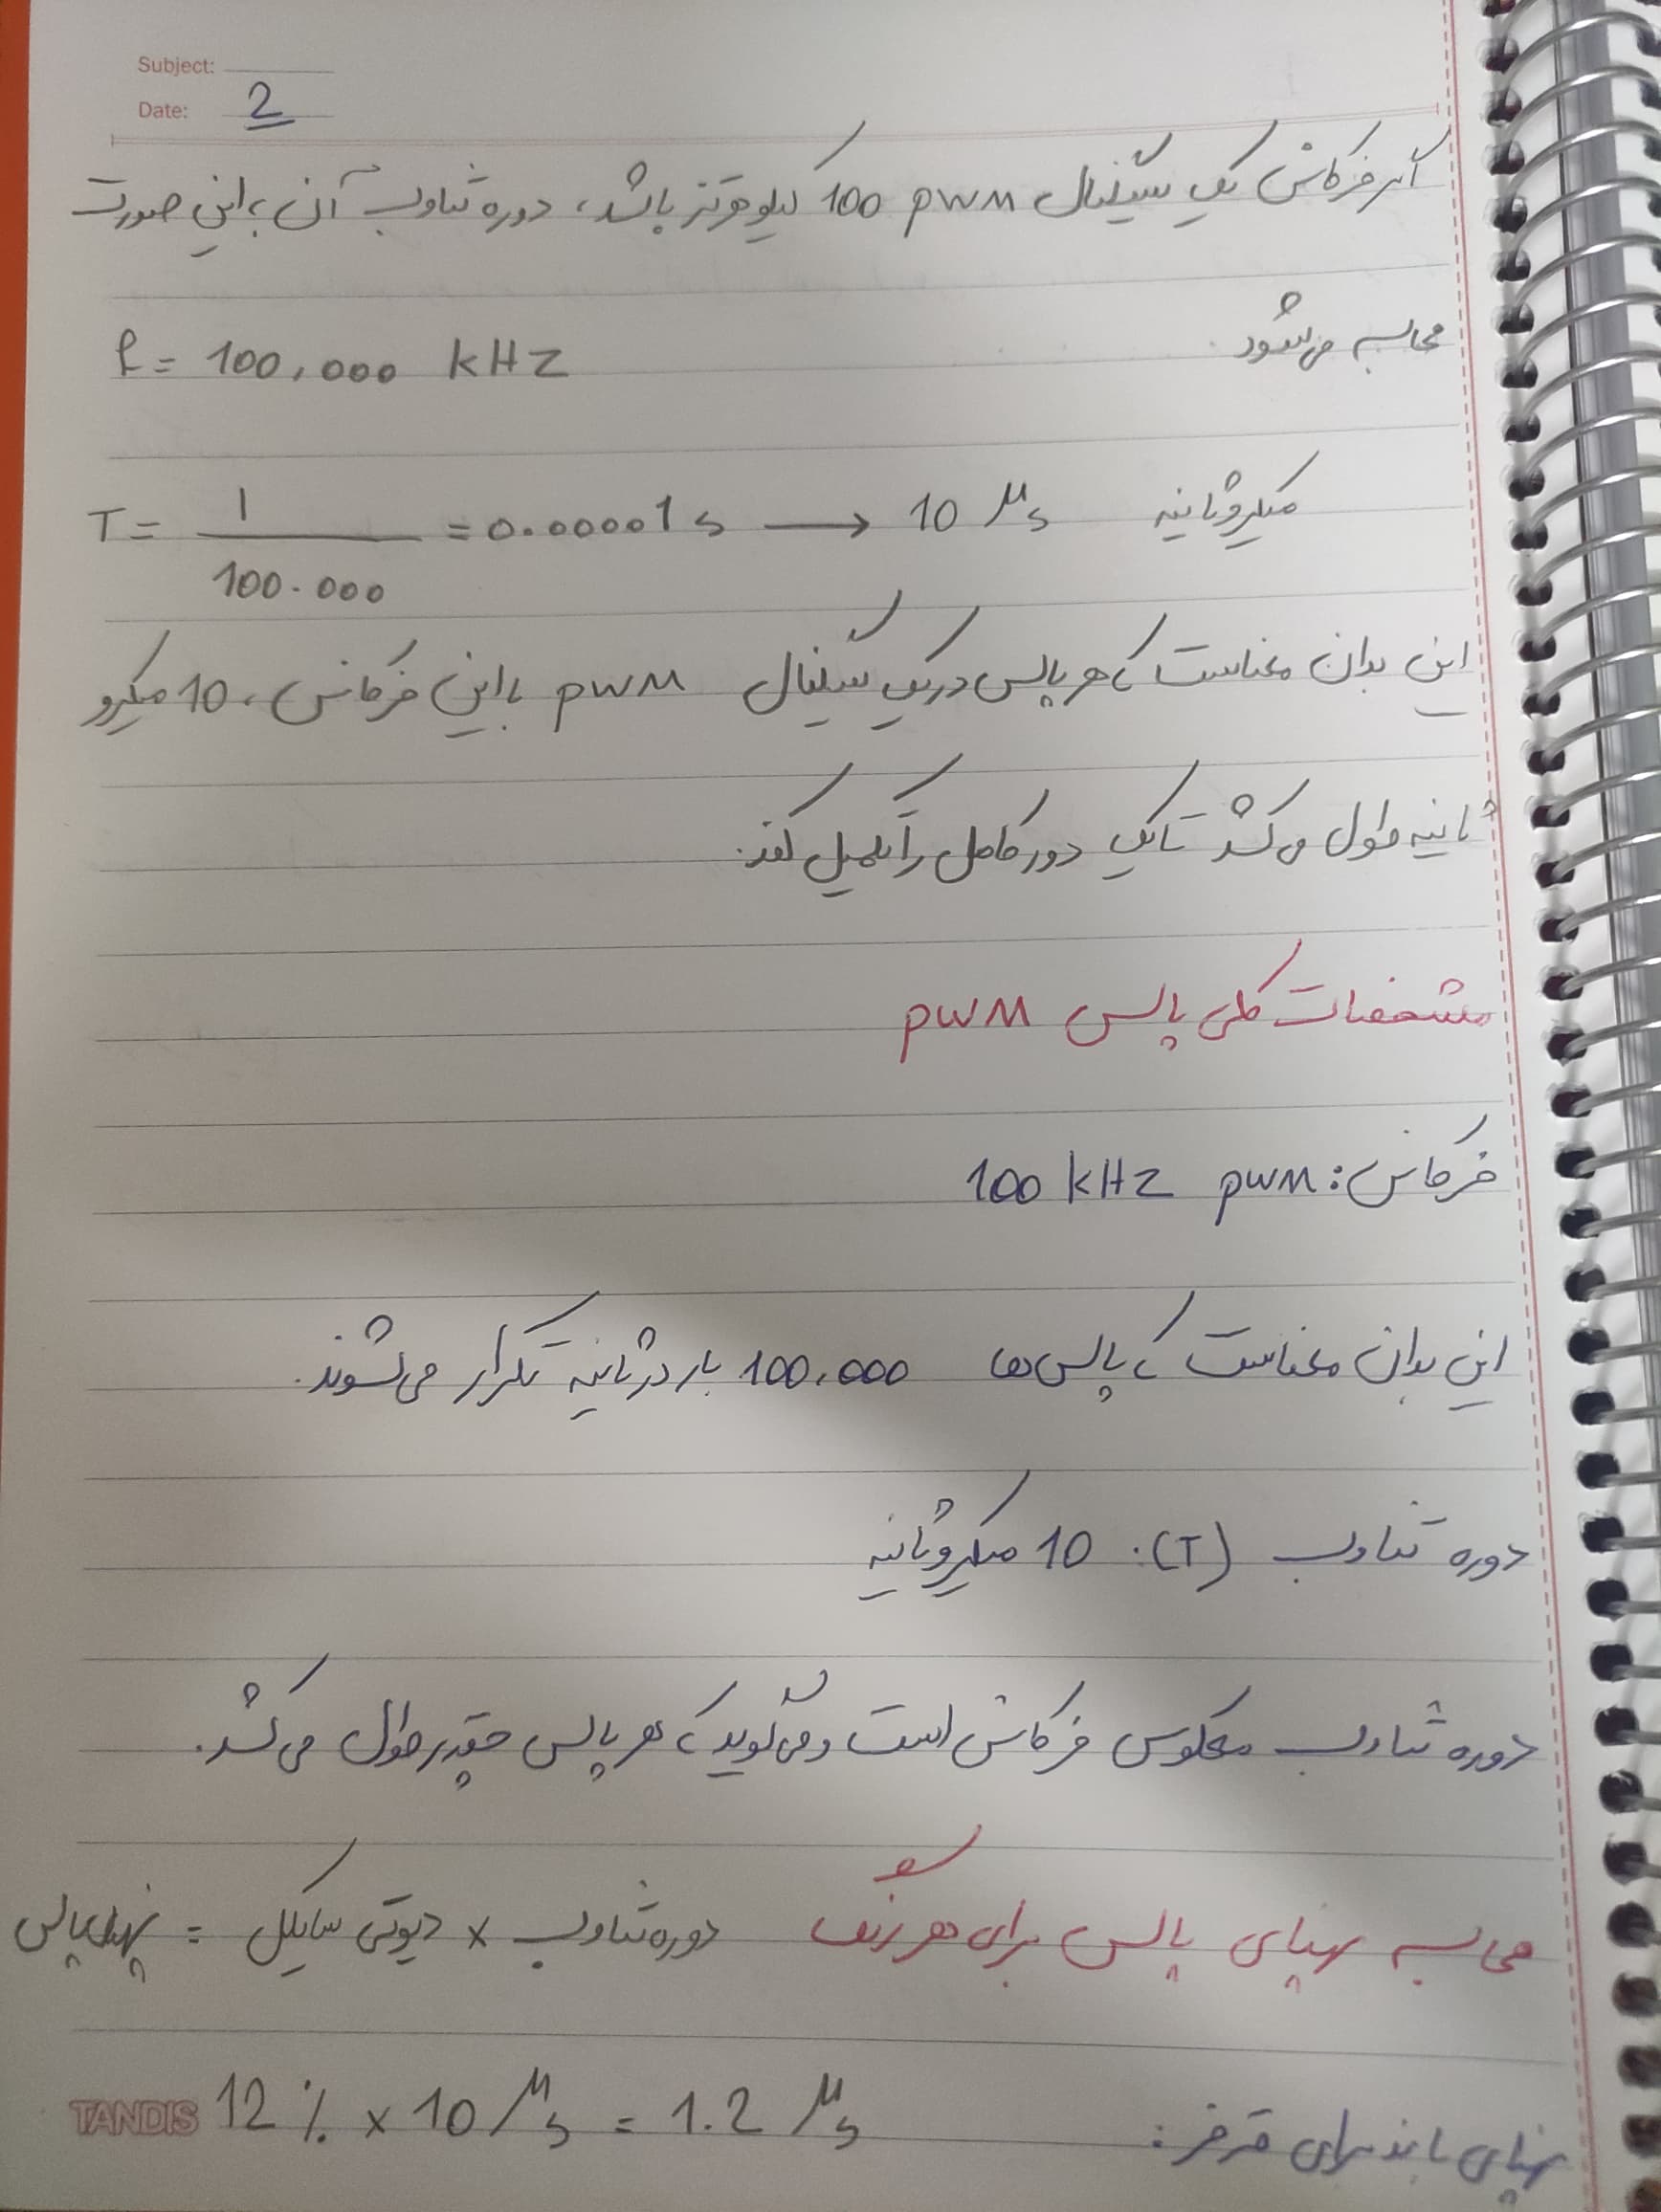 Subject:
Date: 2
اگر فرکانس یک سیگنال pwm 100 کیلوهرتز باشد، دوره تناوب آن به این صورت
محاسبه می‌شود
f = 100,000 kHz
T = 1 / 100.000 = 0.00001 s → 10 μs میکروثانیه
این بدان معناست که هر پالس در یک سیگنال pwm با این فرکانس، 10 میکرو
ثانیه طول می‌کشد تا یک دور کامل را تکمیل کند.
مشخصات کلی پالس pwm
فرکانس: 100 kHz pwm
این بدان معناست که پالس‌ها 100,000 بار در ثانیه تکرار می‌شوند.
دوره تناوب (T): 10 میکروثانیه
دوره تناوب معکوس فرکانس است و می‌گوید که هر پالس چقدر طول می‌کشد.
محاسبه پهنای پالس برای هر رنگ دوره تناوب × دیوتی سایکل = پهنای پالس
پهنای باند برای قرمز: 12% × 10 μs = 1.2 μs
TANDIS